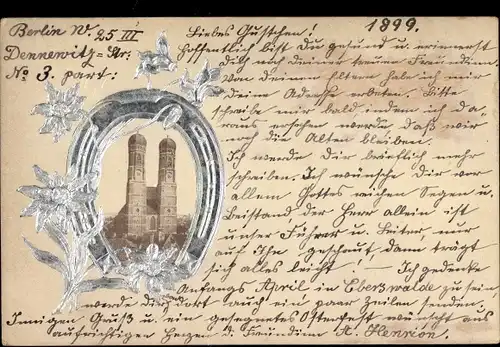 Berlin W. 25 III 1899.
Dennewitz-Str:
No 3. part:
Liebes Gustchen!
Hoffentlich bist Du gesund u. erinnerst
Dich noch Deiner treuen Freundinn.
Von Deinen Eltern habe ich mir
Deine Adresse erbeten. Bitte
schreibe mir bald indem ich da-
raus ersehen werde, daß wir
noch die Alten bleiben.
Ich werde Dir brieflich mehr
schreiben. Ich wünsche Dir vor
allem Gottes reichen Segen u.
Beistand der Herr allein ist
unser Führer u. Leiter, nur
auf Ihn geschaut, dann trägt
sich alles leicht! Ich gedenke
Anfangs April in Eberswalde zu sein
werde Dir dort auch ein paar Zeilen senden.
Innigen Gruß u. ein gesegnetes Osterfest wünscht aus
aufrichtigen Herzen d. Freundinn A. Henrion.